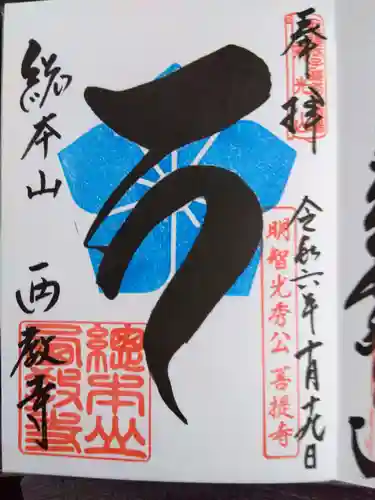 奉拝
令和六年十月十九日
明智光秀公 菩提寺
総本山 西教寺
總本山
西教寺